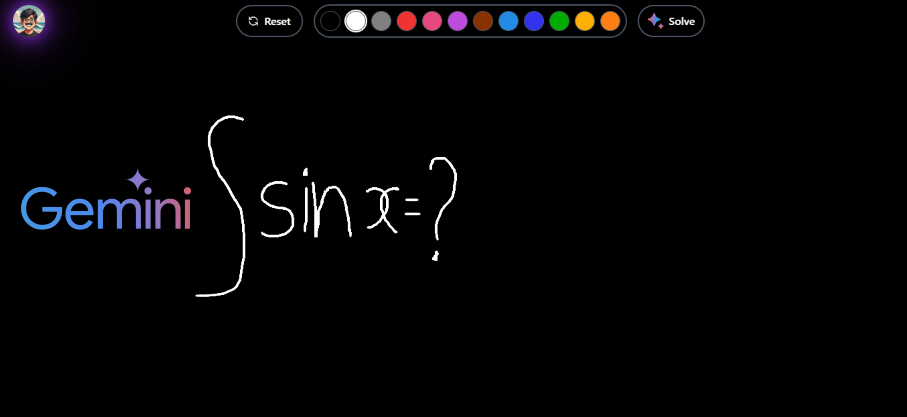 Reset Solve
Gemini ∫ sin x = ?